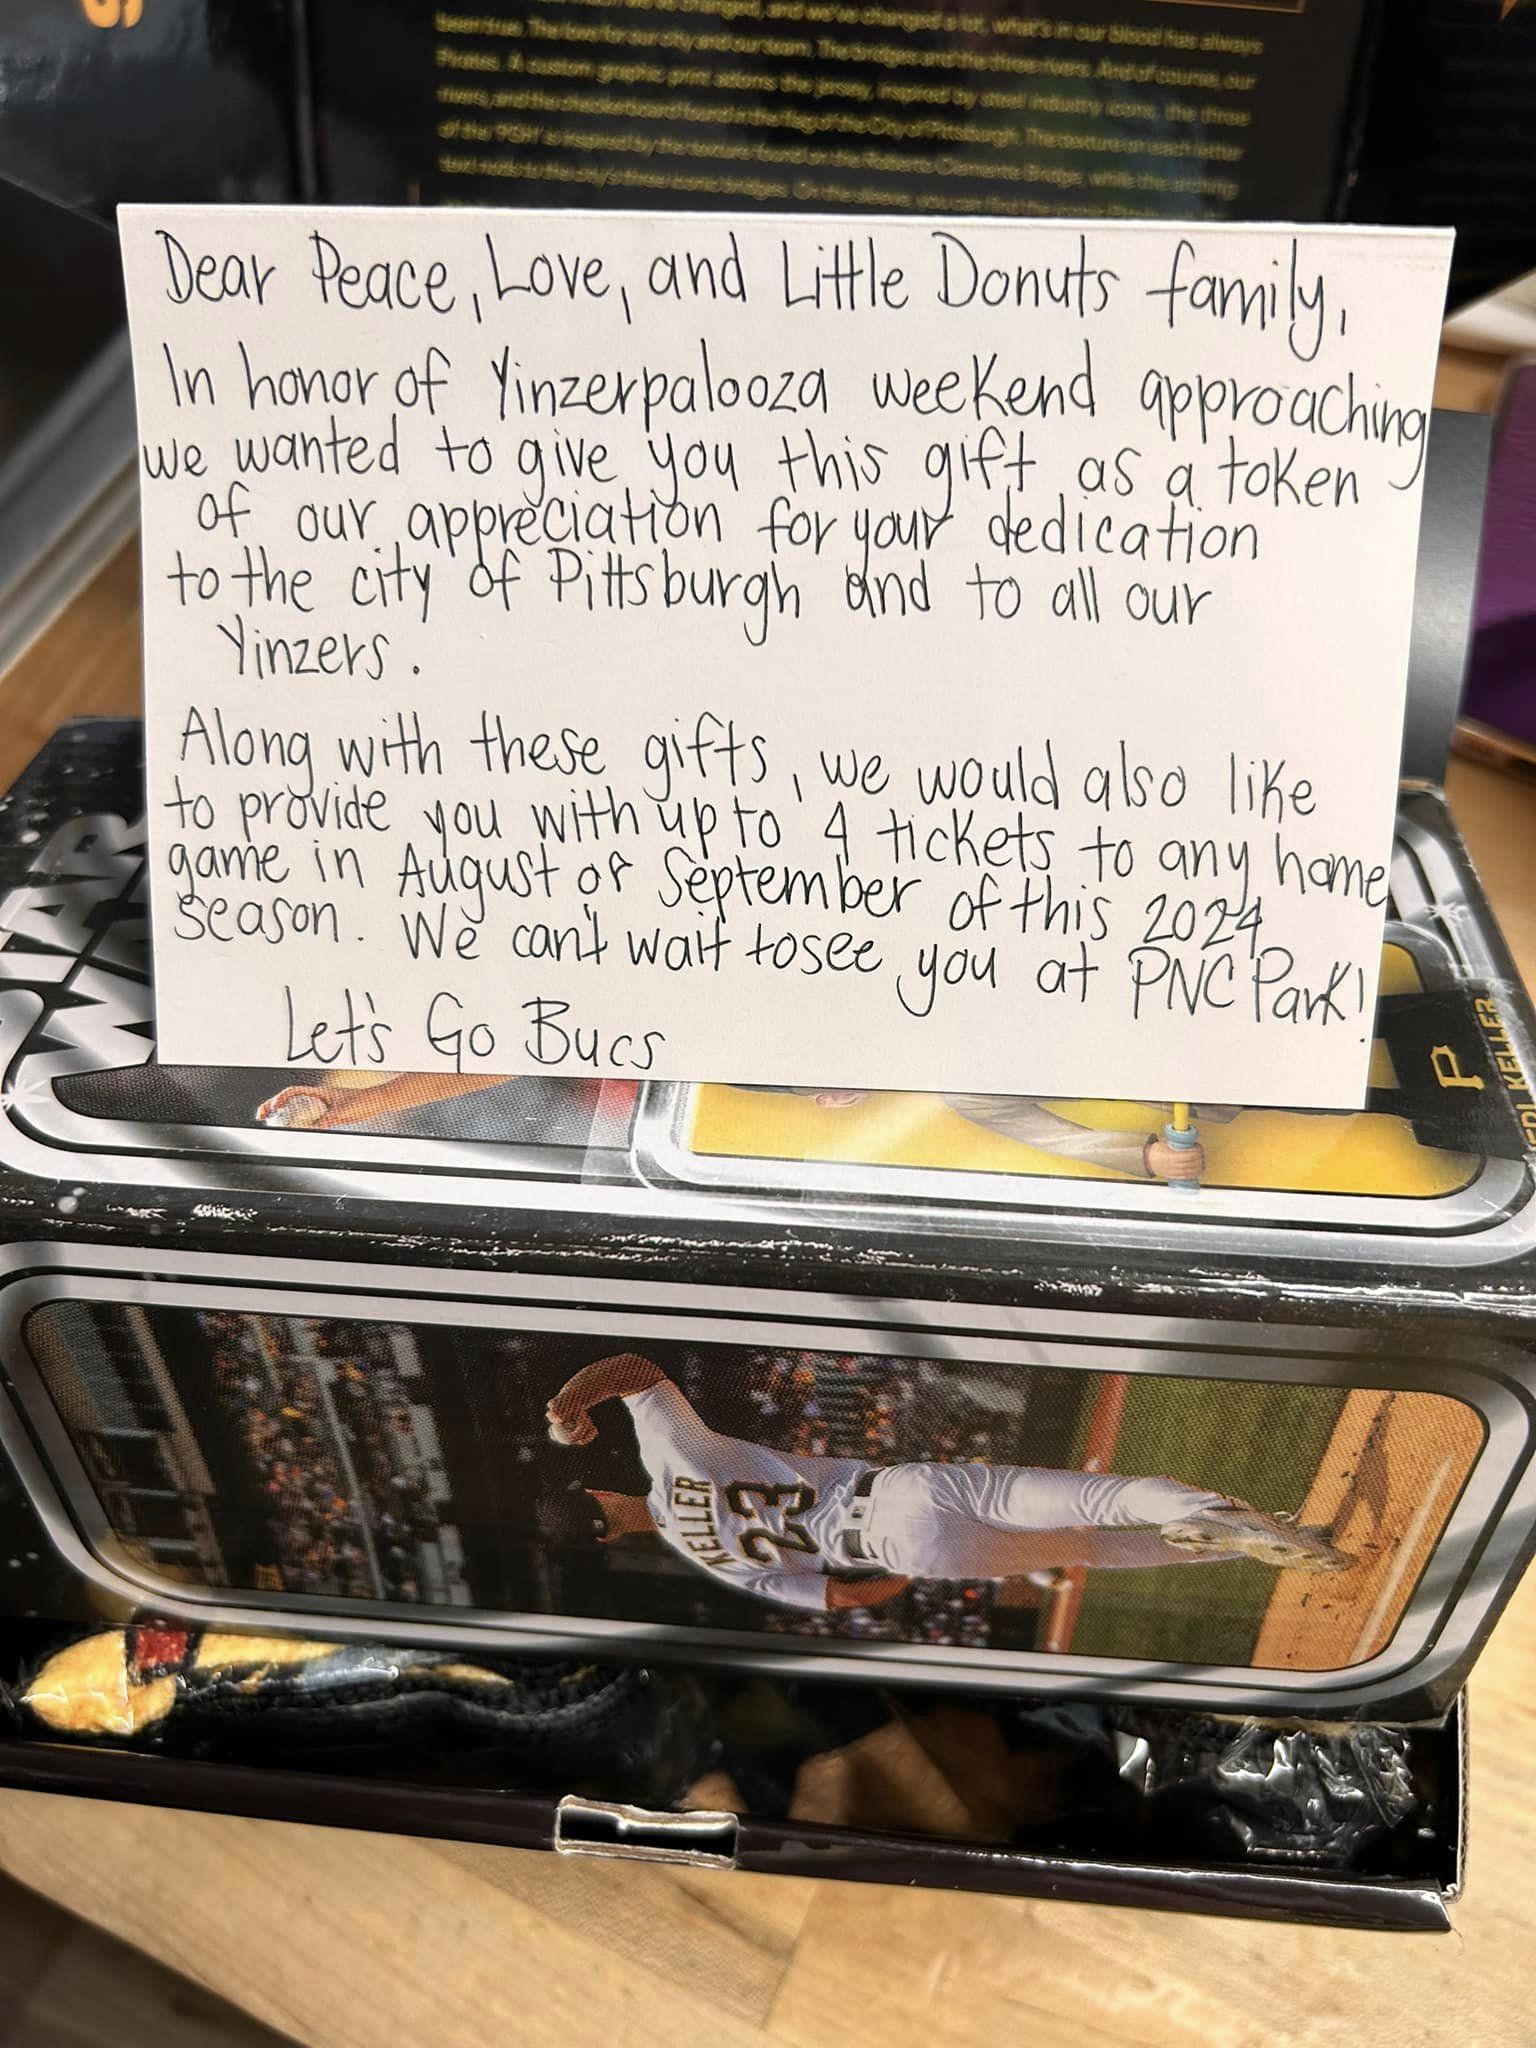 changed, and we've changed a lot, what's in our blood has always
been true. The love for our city and our team. The bridges and the three rivers. And of course, our
Pirates. A custom graphic print adorns the jersey, inspired by steel industry icons, the three
rivers, and the checkerboard found in the flag of the City of Pittsburgh. The texture on each letter
of the 'PGH' is inspired by the texture found on the Roberto Clemente Bridge, while the arching
text nods to the city's three iconic bridges. On the sleeve, you can find
Dear Peace, Love, and Little Donuts family,
In honor of Yinzerpalooza weekend approaching
we wanted to give you this gift as a token
of our appreciation for your dedication
to the city of Pittsburgh and to all our
Yinzers.
Along with these gifts, we would also like
to provide you with up to 4 tickets to any home
game in August or September of this 2024
season. We can't wait to see you at PNC Park!
Let's Go Bucs
STAR
WARS
P
KELLER
KELLER
23